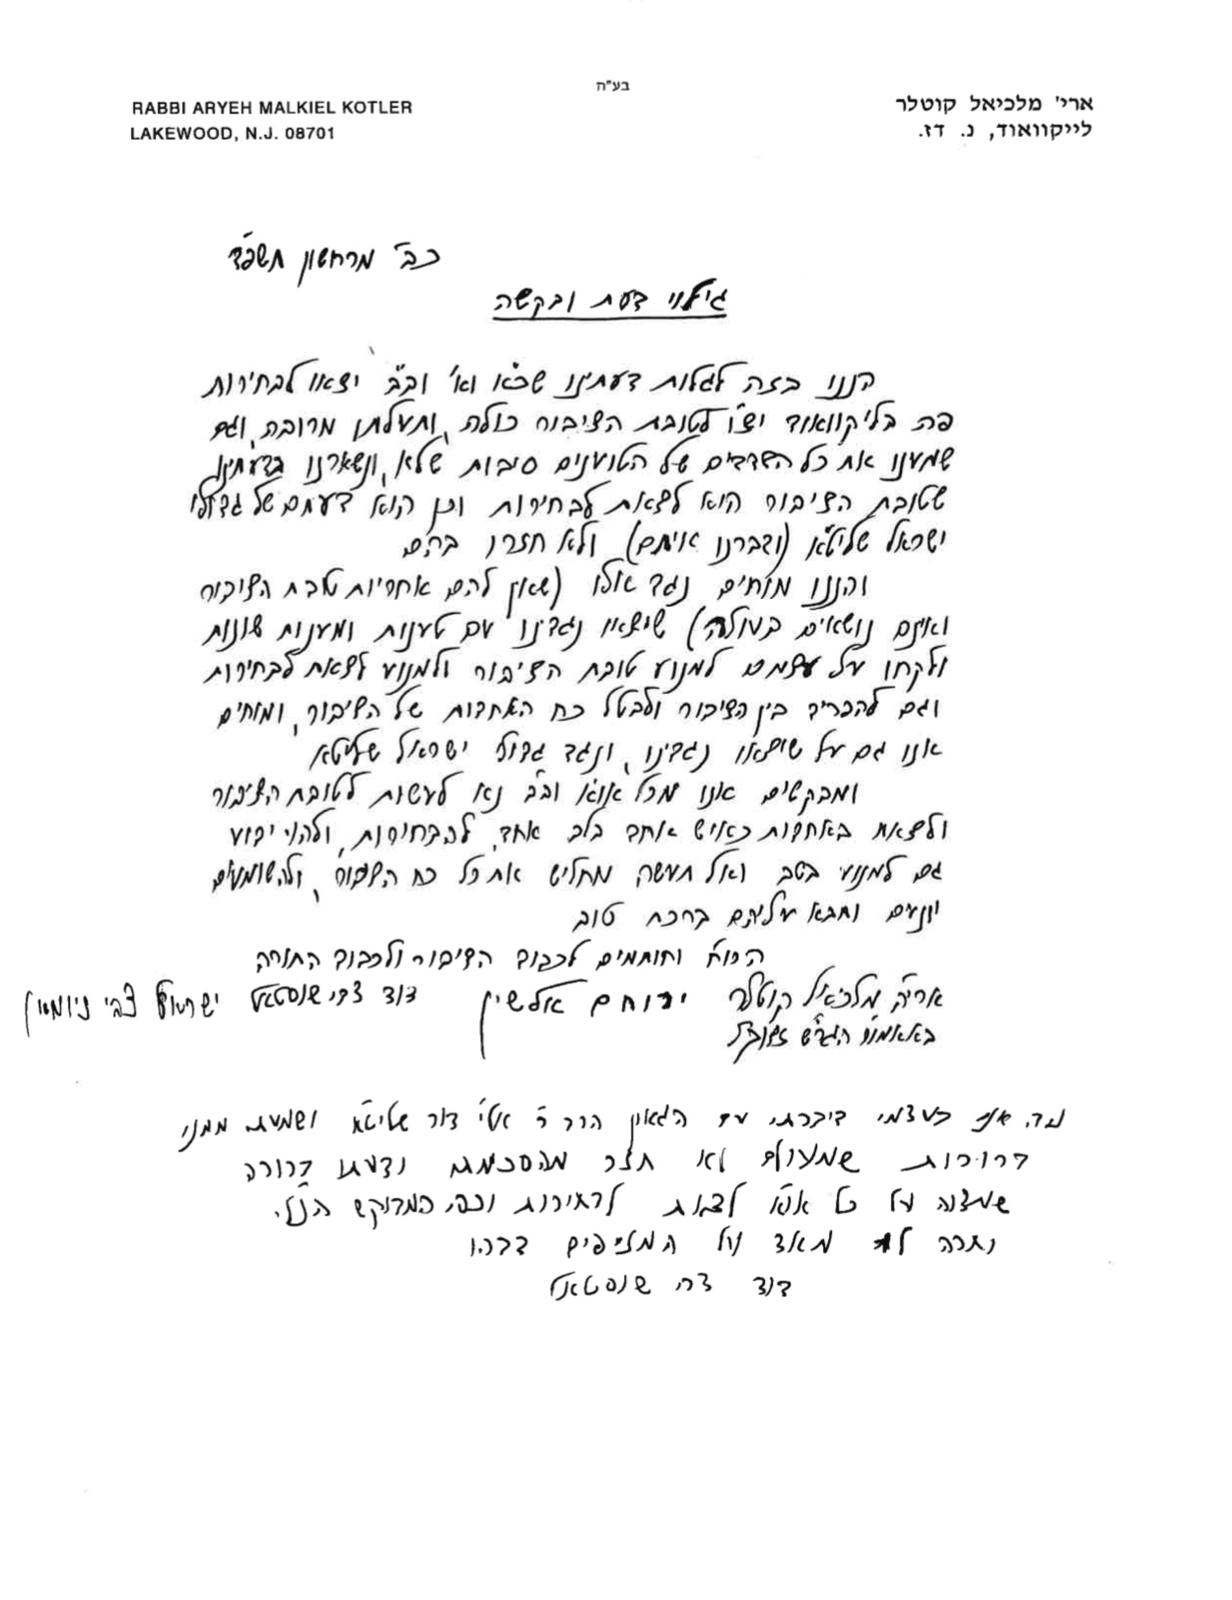 בע"ה
RABBI ARYEH MALKIEL KOTLER
LAKEWOOD, N.J. 08701
ארי' מלכיאל קוטלר
לייקוואוד, נ. דז.
כב' מרחשון תשפ"ד
גילוי דעת ובקשה
הננו בזה לגלות דעתינו שכ"א וא' וב"ב יצאו לבחירות
פה בלייקוואוד יצ"ו לטובת הציבור כולה, ותועלתן מרובה, וגם
שמענו את כל הצדדים של הטוענים סיבות שלא, ונשארנו בדעתינו
שטובת הציבור הוא לצאת לבחירות וכן הוא דעתם של גדולי
ישראל שליט"א (ודברנו איתם) ולא חזרו בהם
והננו מוחים נגד אלו (שאין להם אחריות טובת הציבור
ואינם נושאים בעולה) שיצאו נגדינו עם טענות ומענות שונות
ולקחו על עצמם למנוע טובת הציבור ולמנוע לצאת לבחירות
וגם להפריד בין הציבור ולבטל כח האחדות של הציבור, ומוחים
אנו גם על שיצאו נגדינו, ונגד גדולי ישראל שליט"א
ומבקשים אנו מכל או"א וב"ב נא לעשות לטובת הציבור
ולצאת באחדות כאיש אחד בלב אחד, להבחירות,
גם למנוע בשב ואל תעשה מחליש את כל כח הציבור, ולהשומעים
יונעם ותבא עליהם ברכת טוב
הכו"ח וחותמים לכבוד הציבור ולכבוד התורה
ארי' מלכיאל קוטלר ירוחם אלשין דוד צבי שוסטאל ישראל צבי ניומאן
באאמו"ר הגר"ש זצוק"ל
נ.ב. אני בעצמי דיברתי עם הגאון הרב ר' אשר דוב שליט"א ושמעתי ממנו
ברורות שמעולם לא חזר מהסכמתו ודעתו ברורה
שמצוה על כל או"א לצאת לבחירות וכפי המבוקש הנ"ל.
וחרה לו מאד על המזייפים דבריו
דוד צבי שוסטאל